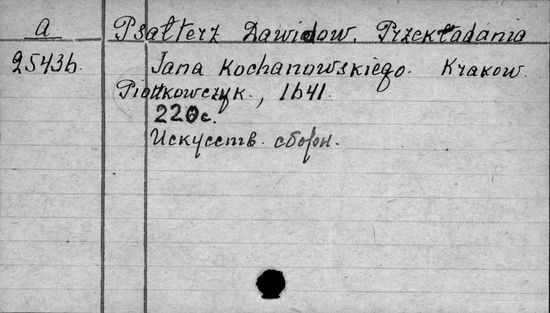 a
Psałterz Dawidow. Przekładania
25436.
Jana Kochanowskiego. Krakow.
Piotrkowczyk., 1641.
220 с.
Искусств. сборн.